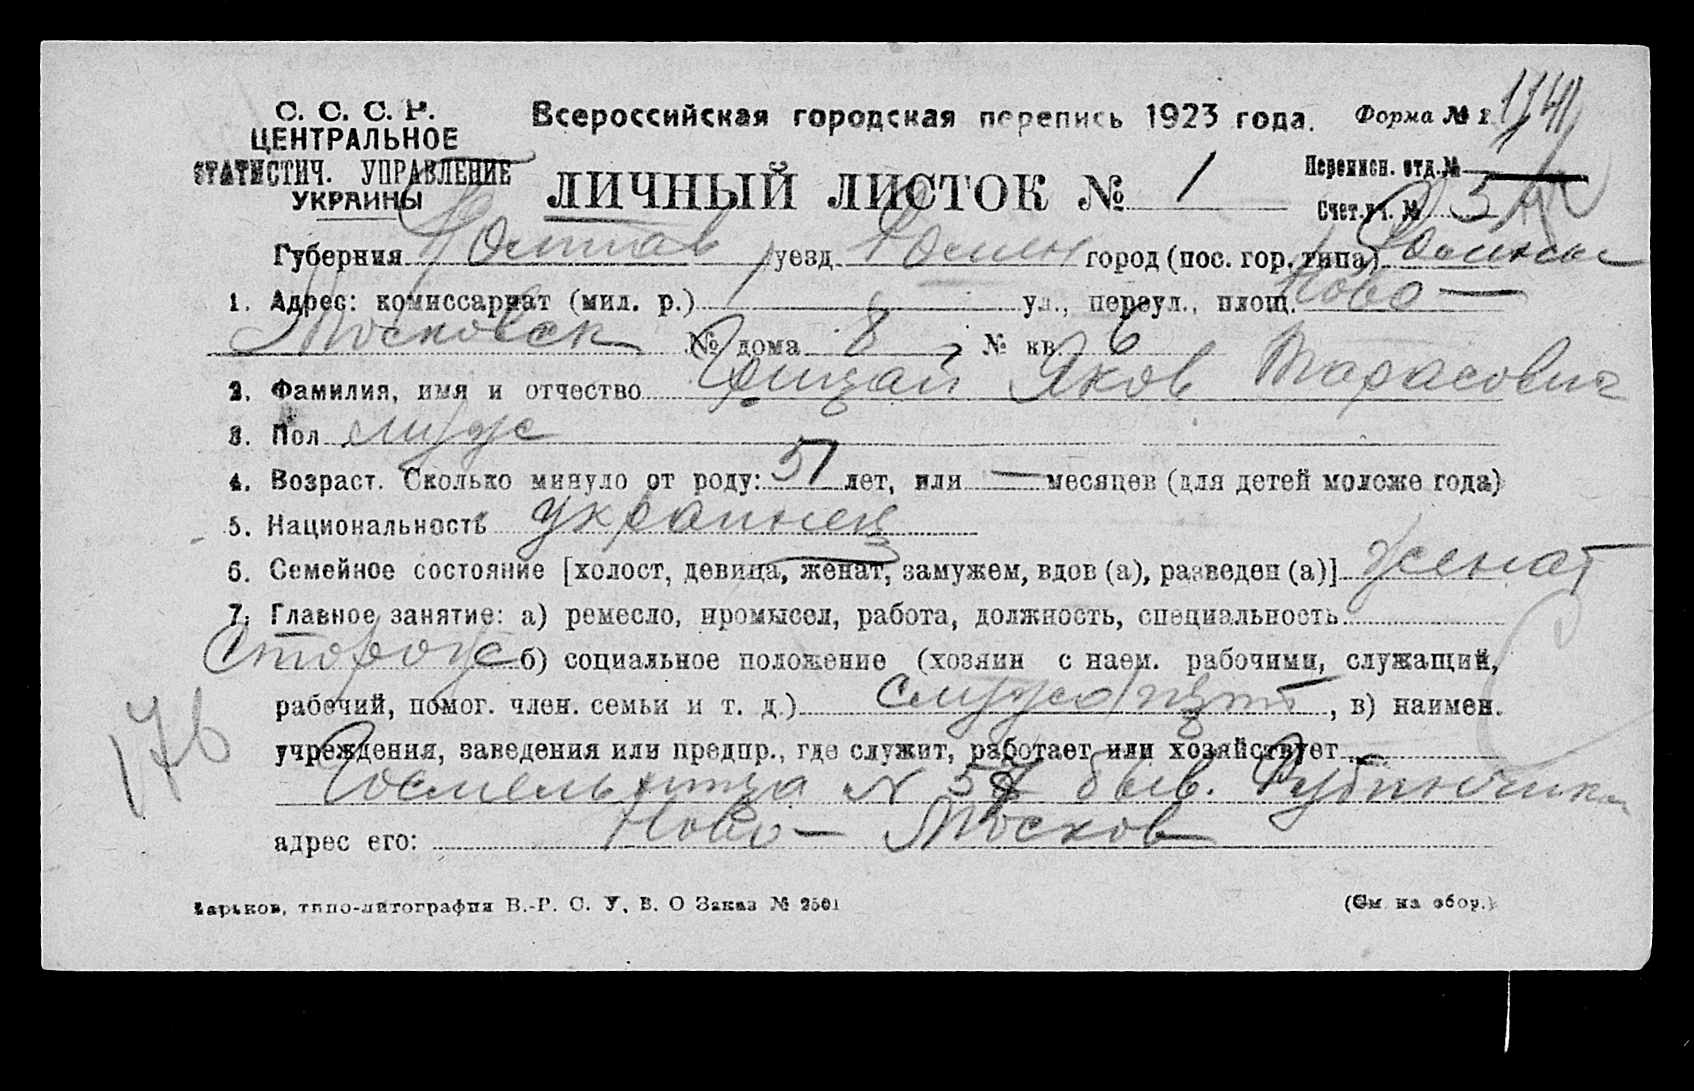 С. С. С. Р.
ЦЕНТРАЛЬНОЕ
СТАТИСТИЧ. УПРАВЛЕНИЕ
УКРАИНЫ
Всероссийская городская перепись 1923 года.
Форма № 1
1141
ЛИЧНЫЙ ЛИСТОК № 1
Переписн. отд. №
Счет. уч. № 3
Губерния Полтав уезд Ромен город (пос. гор. типа) Ромны
1. Адрес: комиссариат (мил. р.) ул., переул., площ. Ново-
Московск № дома 8, № кв. 6
2. Фамилия, имя и отчество Грицай Яков Тарасович
3. Пол муж
4. Возраст. Сколько минуло от роду: 51 лет, или — месяцев (для детей моложе года)
5. Национальность украинец
6. Семейное состояние [холост, девица, женат, замужем, вдов (а), разведен (а)] женат
7. Главное занятие: а) ремесло, промысел, работа, должность, специальность
Сторож б) социальное положение (хозяин с наем. рабочими, служащий,
рабочий, помог. член. семьи и т. д.) служащий, в) наимен.
учреждения, заведения или предпр., где служит, работает или хозяйствует
Госмельница N 57 быв. Рубинчика
адрес его: Ново-Московс
176
Харьков, типо-литография В.-Р. С. У. В. О Заказ № 2501
(См. на обор.)